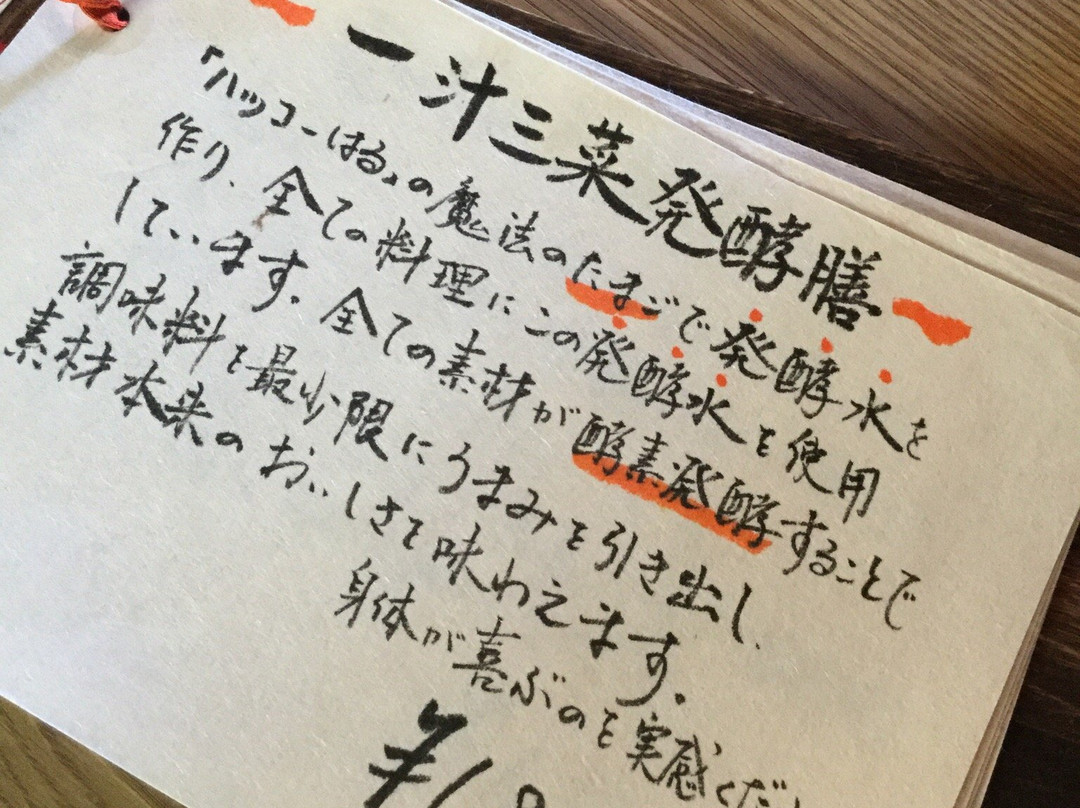 一汁三菜発酵膳
「ハッコーはる」の魔法のたまごで発酵水を
作り、全ての料理にこの発酵水を使用
しています。全ての素材が酵素発酵することで
調味料を最少限にうまみを引き出し、
素材本来のおいしさを味わえます。
身体が喜ぶのを実感くだ
¥1